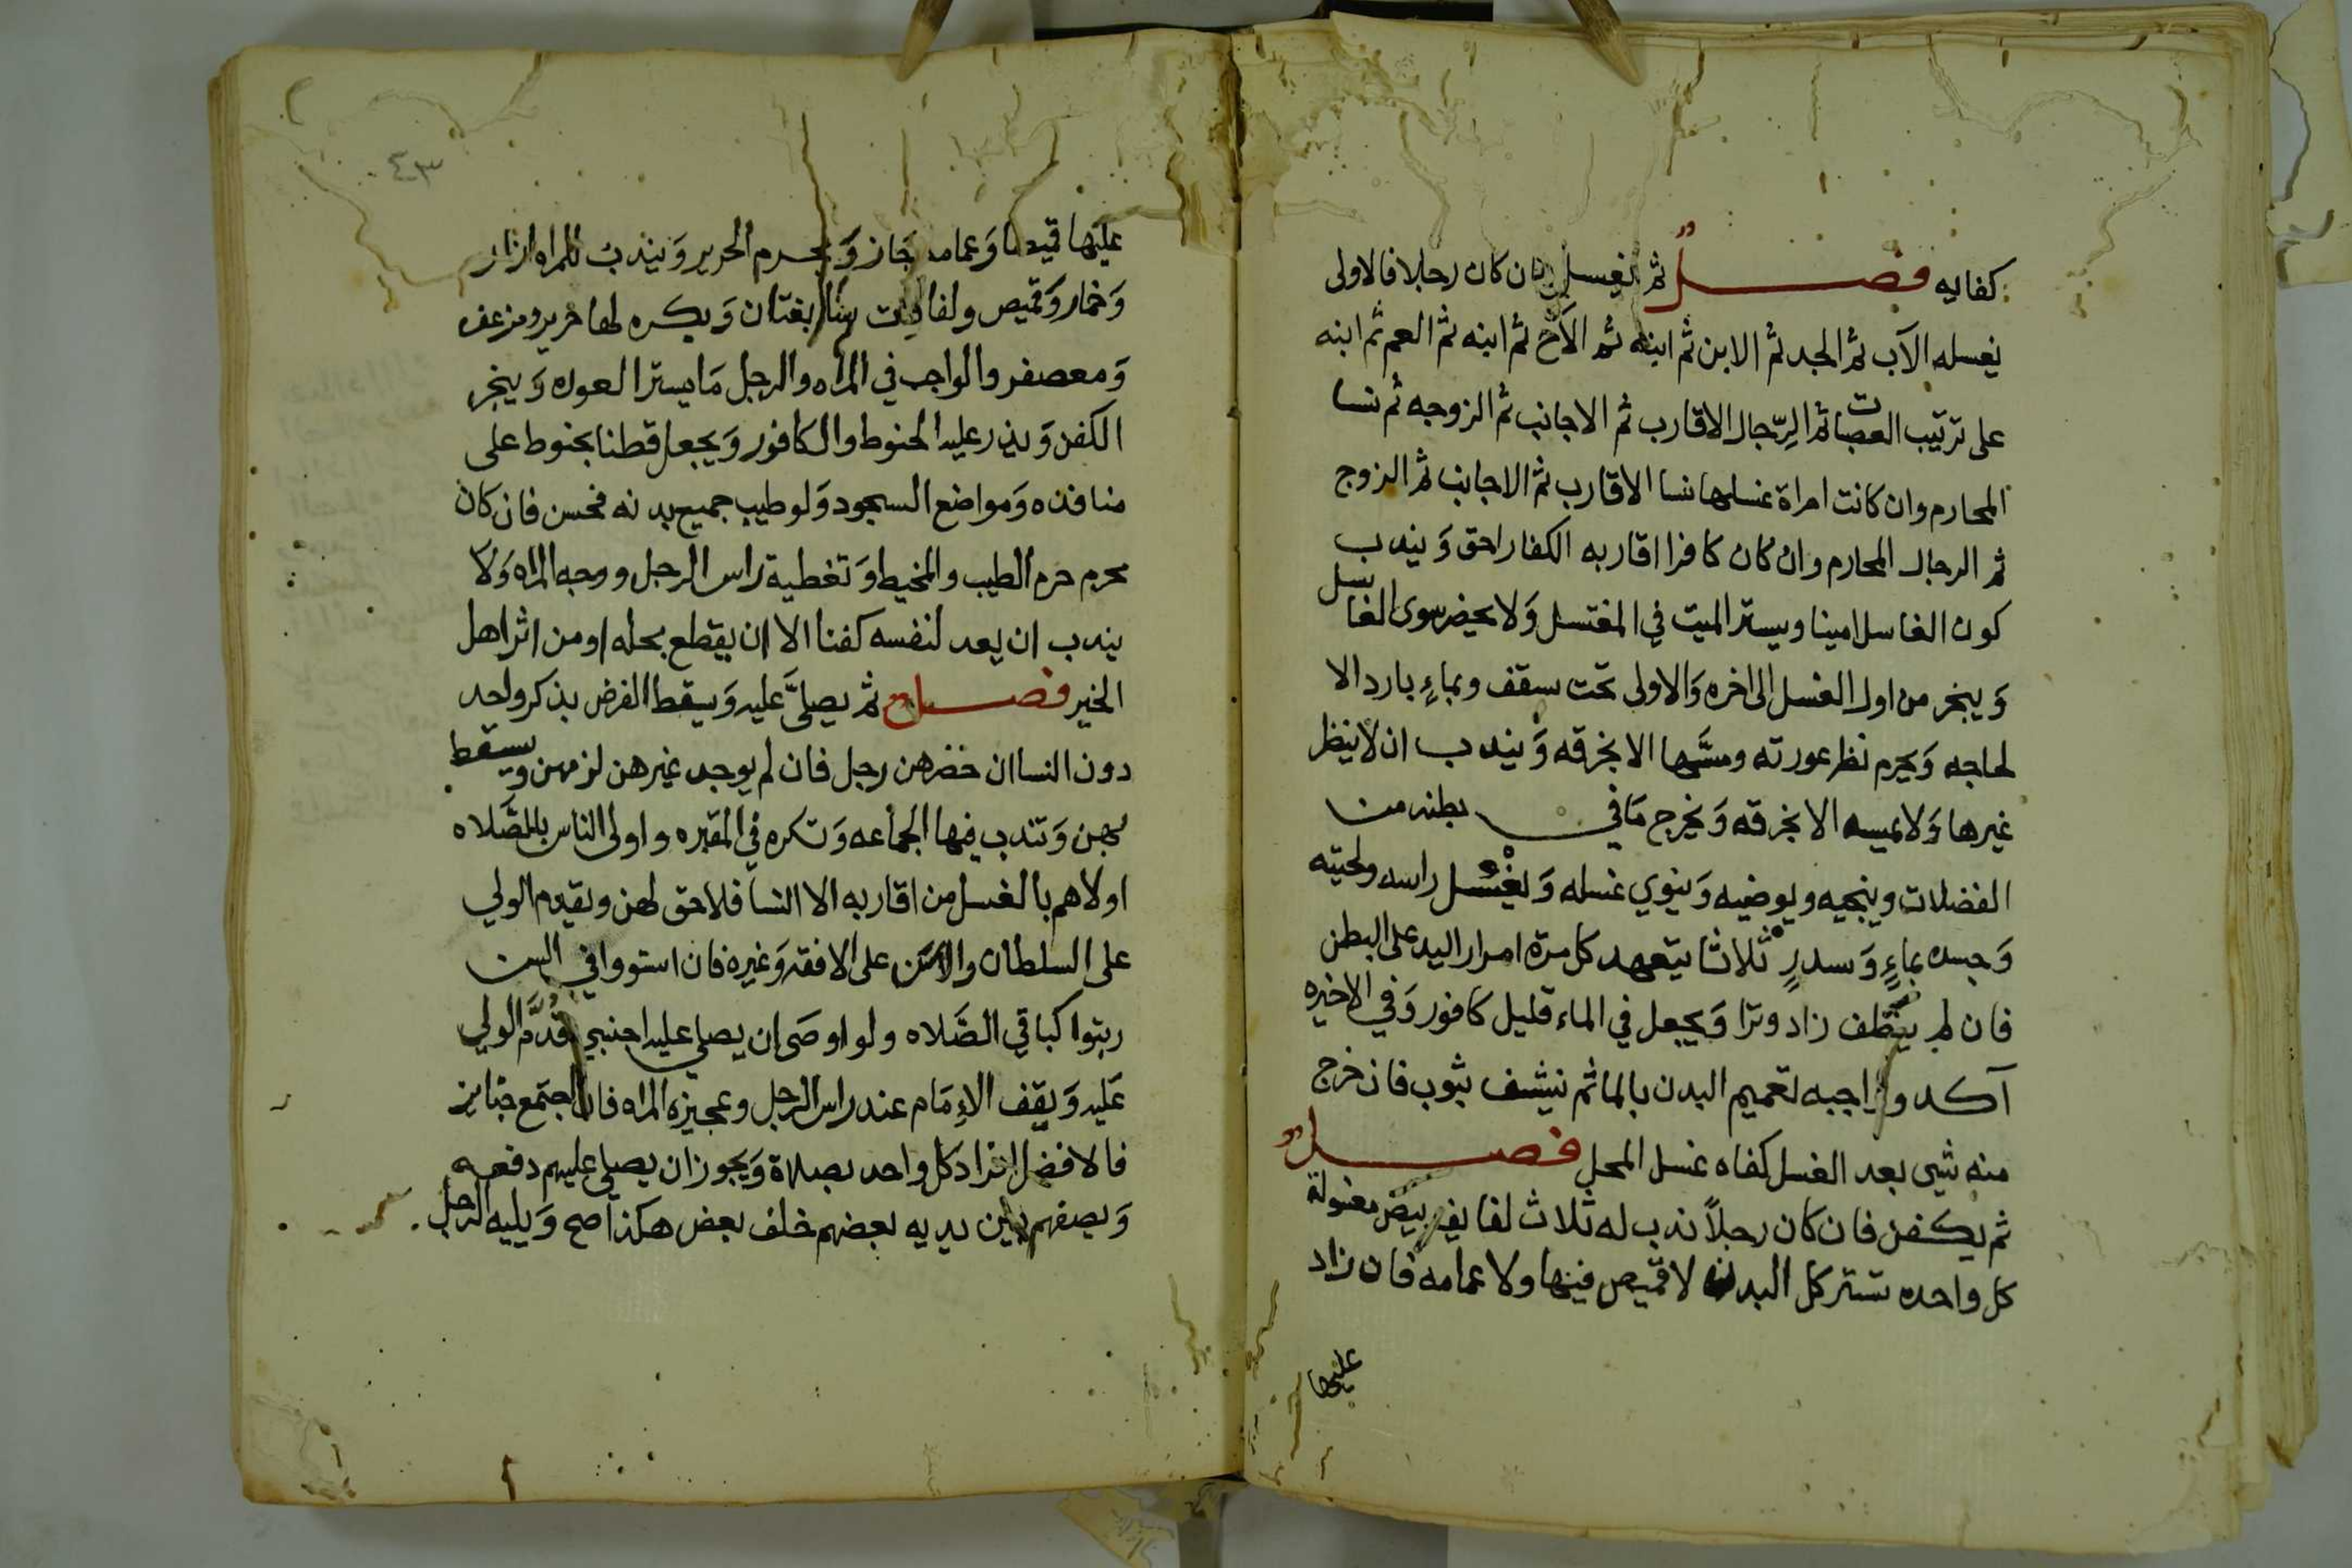 كفايه فصل ثم يغسل فان كان رجلا فالاولى
يغسله الآب ثم الجد ثم الابن ثم ابنه ثم الآخ ثم ابنه ثم العم ثم ابنه
على ترتيب العصبات ثم الرّجال الاقارب ثم الاجانب ثم الزوجه ثم نسا
المحارم وان كانت امراة غسلها نسا الاقارب ثم الاجانب ثم الزوج
ثم الرجال المحارم وان كان كافرا اقاربه الكفار احق وَيندب
كون الغاسل امينا ويستر الميت في المغتسل وَلا يحضر سوى الغاسل
وَيبخر من اول الغسل الى اخره وَالاولى تحت سقف وبماءٍ بارد الا
لحاجه وَيحرم نظر عورته ومسّها الا بخرقه وَيندب ان لا ينظر
غيرها وَلا يمسه الا بخرقه وَيخرج مَا في بطنه من
الفضلات وينجيه ويوضيه وَينوي غسله وَيغسل راسه ولحيته
وَجسده بماءٍ وَسدرٍ ثلاثا يتعهد كل مرة امرار اليد على البطن
فان لم ينظف زاد وترا وَيجعل في الماء قليل كافور وَفي الاخيره
آكد وواجبه تعميم البدن بالما ثم ينشف بثوب فان خرج
منه شي بعد الغسل كفاه غسل المحل فصل
ثم يكفن فان كان رجلاً ندب له ثلاث لفايف بيض مغسولة
كل واحده تستر كل البدن لا قميص فيها ولا عمامه فان زاد
عليها
٤٣
عليها قيصا وَعمامه جَاز وَيحرم الحرير وَيندب للمراه ازار
وَخمار وَقميص ولفافتان سابغتان وَيكره لها حرير ومزعفر
وَمعصفر والواجب في المراه والرجل مَا يستر العوره وَيبخر
الكفن وَيذر عليه الحنوط والكافور وَيجعل قطنا بحنوط على
منافذه وَمواضع السجود وَلو طيب جميع بدنه فحسن فان كان
محرم حرم الطيب والمخيط وَتغطية راس الرجل ووجه المراه وَلا
يندب ان يعد لنفسه كفنا الا ان يقطع بحله او من اثر اهل
الخير فصل ثم يصلىَّ عليه وَيسقط الفرض بذكر واحد
دون النسا ان حضرهن رجل فان لم يوجد غيرهن لزمهن ويسقط
بهن وَتندب فيها الجماعه وَتكره في المقبره واولى الناس بالصَّلاه
اولاهم بالغسل من اقاربه الا النسا فلا حق لهن ويقدم الولي
على السلطان والاسن على الافقه وَغيره فان استووا في السن
رتبوا كباقي الصَّلاه ولو اوصَى ان يصلي عليه اجنبي قُدِّمَ الولي
عَليه وَيقف الاِمَام عند راس الرجل وعجيزة المراه فان اجتمع جنايز
فالافضل افراد كل واحد بصلاة وَيجوز ان يصلي عليهم دفعه
وَيصفهم بين يديه بعضهم خلف بعض هكذا صح وَيليه الرجل